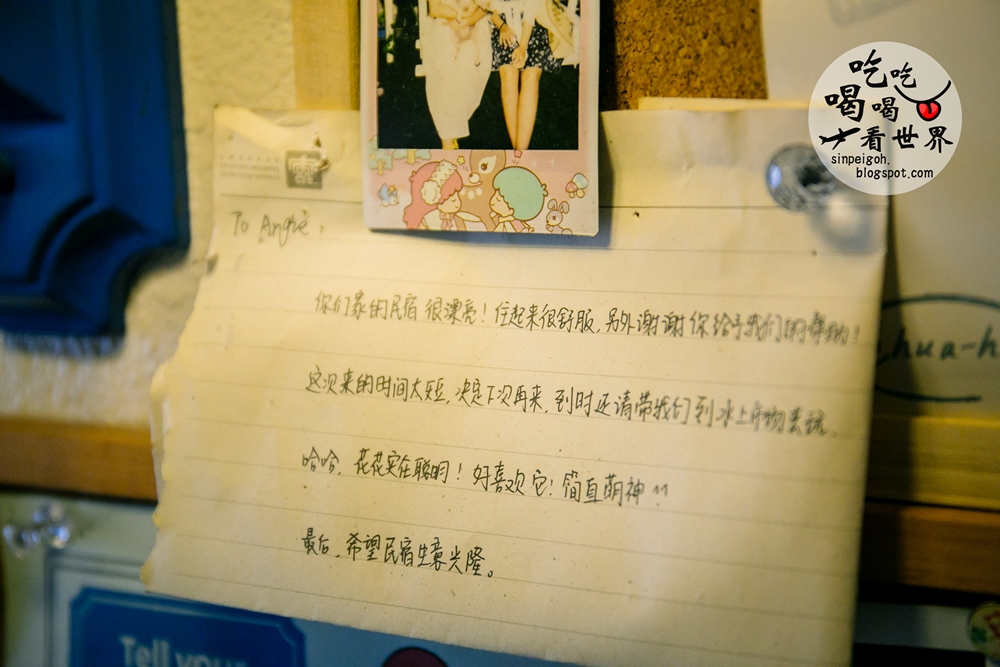 吃吃
喝喝
看世界
sinpeigoh.
blogspot.com
To Angie,
你们家的民宿很漂亮！住起来很舒服，另外谢谢你给予我们的帮助！
这次来的时间太短，决定下次再来，到时还请带我们到水上市场去玩。
哈哈，花花实在聪明！好喜欢它！简直萌神^^
最后，希望民宿生意兴隆。
hua-h
Tell your